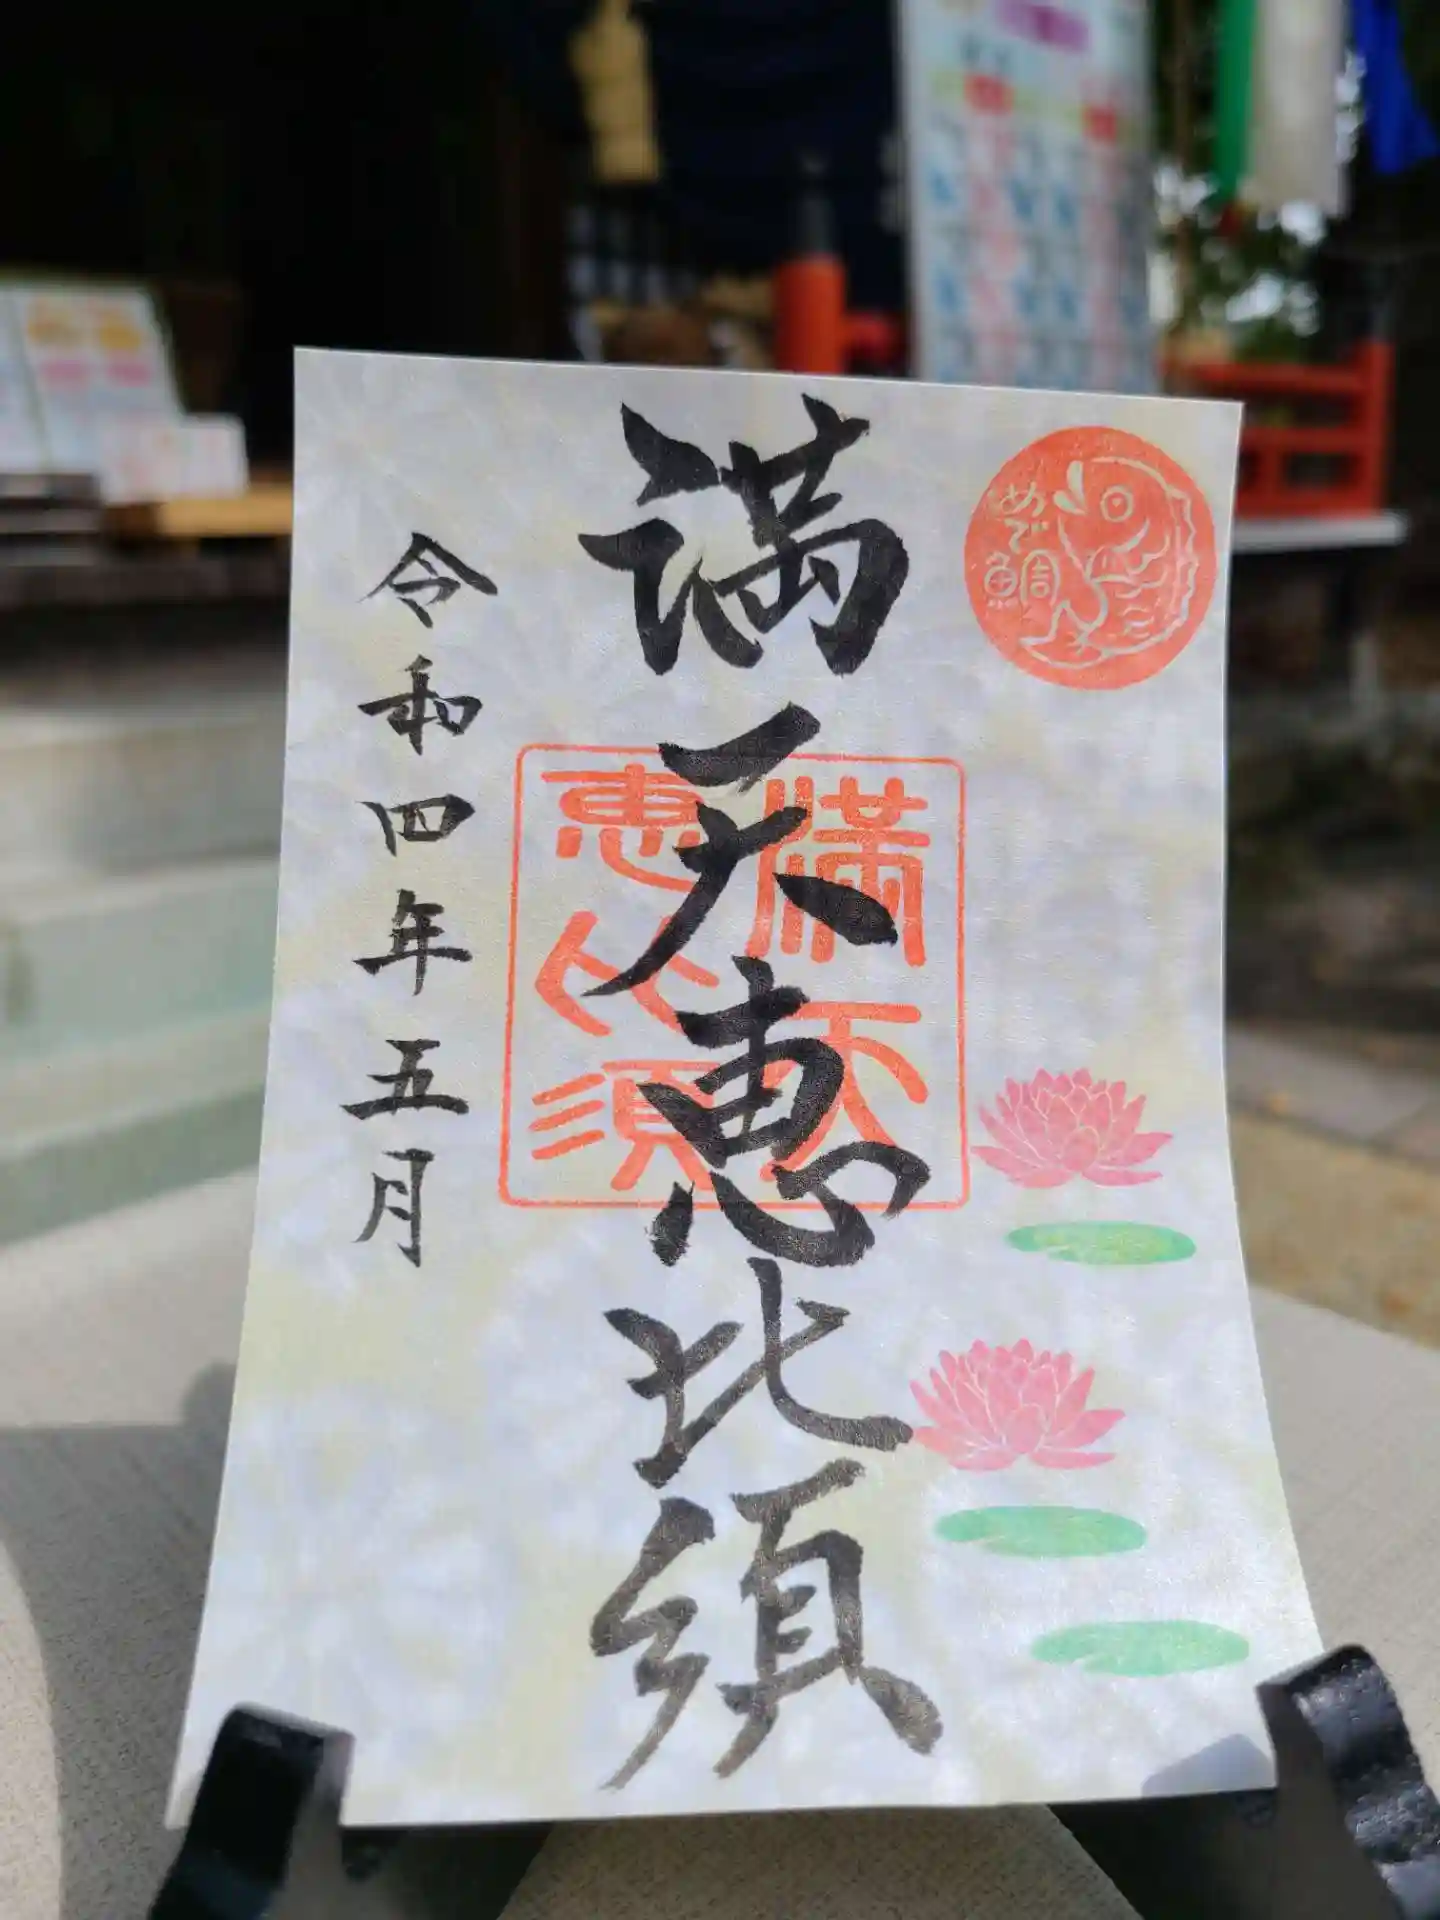 めで
鯛
満天恵比須
満天
恵比須
令和四年五月